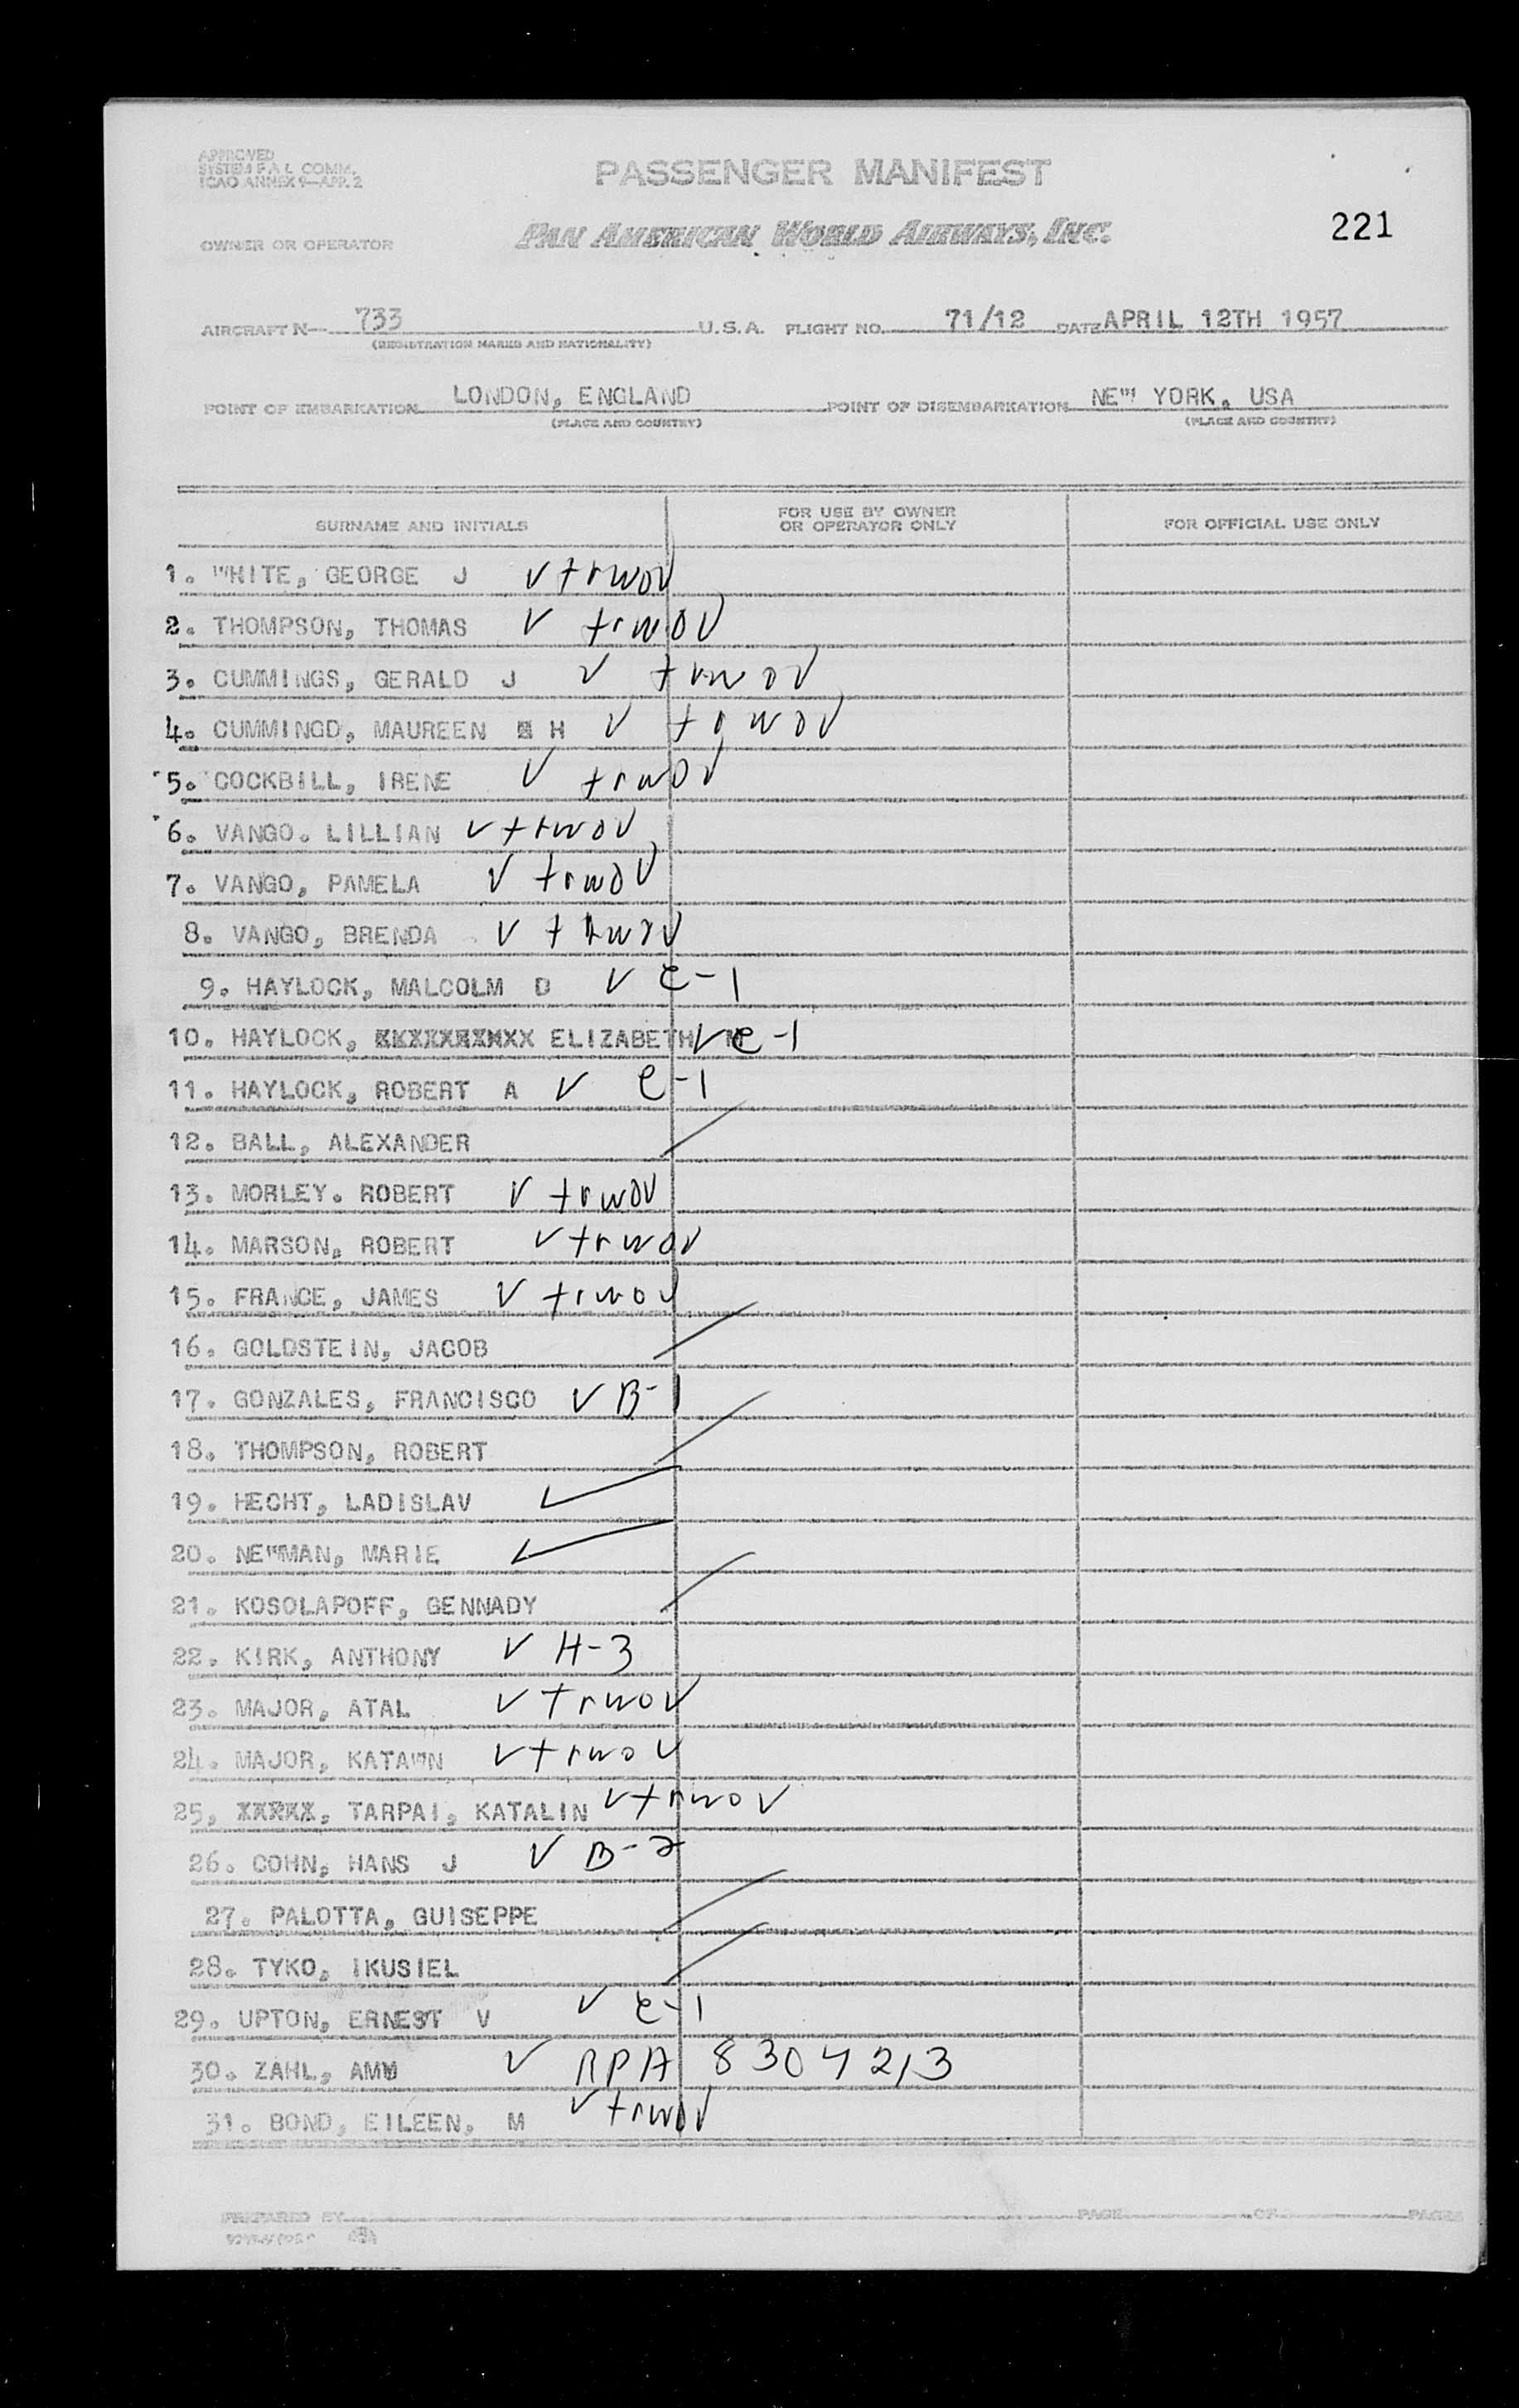 APPROVED
SYSTEM F A L COMM.
ICAO ANNEX 9—APP. 2
PASSENGER MANIFEST
OWNER OR OPERATOR PAN AMERICAN WORLD AIRWAYS, INC.
221
AIRCRAFT N— 733 U.S.A. FLIGHT NO. 71/12 DATE APRIL 12TH 1957
(REGISTRATION MARKS AND NATIONALITY)
POINT OF EMBARKATION LONDON, ENGLAND POINT OF DISEMBARKATION NEW YORK, USA
(PLACE AND COUNTRY) (PLACE AND COUNTRY)
SURNAME AND INITIALS FOR USE BY OWNER OR OPERATOR ONLY FOR OFFICIAL USE ONLY
1. WHITE, GEORGE J √ trwov
2. THOMPSON, THOMAS √ trwov
3. CUMMINGS, GERALD J √ trwov
4. CUMMINGD, MAUREEN H √ trwov
5. COCKBILL, IRENE √ trwov
6. VANGO. LILLIAN √ trwov
7. VANGO, PAMELA √ trwov
8. VANGO, BRENDA √ trwov
9. HAYLOCK, MALCOLM D √ e-1
10. HAYLOCK, XXXXXXXXXX ELIZABETH M √ e-1
11. HAYLOCK, ROBERT A √ e-1
12. BALL, ALEXANDER
13. MORLEY. ROBERT √ trwov
14. MARSON, ROBERT √ trwov
15. FRANCE, JAMES √ trwov
16. GOLDSTEIN, JACOB
17. GONZALES, FRANCISCO √ B-1
18. THOMPSON, ROBERT
19. HECHT, LADISLAV √
20. NEWMAN, MARIE √
21. KOSOLAPOFF, GENNADY
22. KIRK, ANTHONY √ H-3
23. MAJOR, ATAL √ trwov
24. MAJOR, KATAWN √ trwov
25, XXXXX, TARPAI, KATALIN √ trwov
26. COHN, HANS J √ B-2
27. PALOTTA, GUISEPPE
28. TYKO, IKUSIEL
29. UPTON, ERNEST V √ e-1
30. ZAHL, AMY √ RPA 8304213
31. BOND, EILEEN, M √ trwov
PREPARED BY PAGE OF PAGES